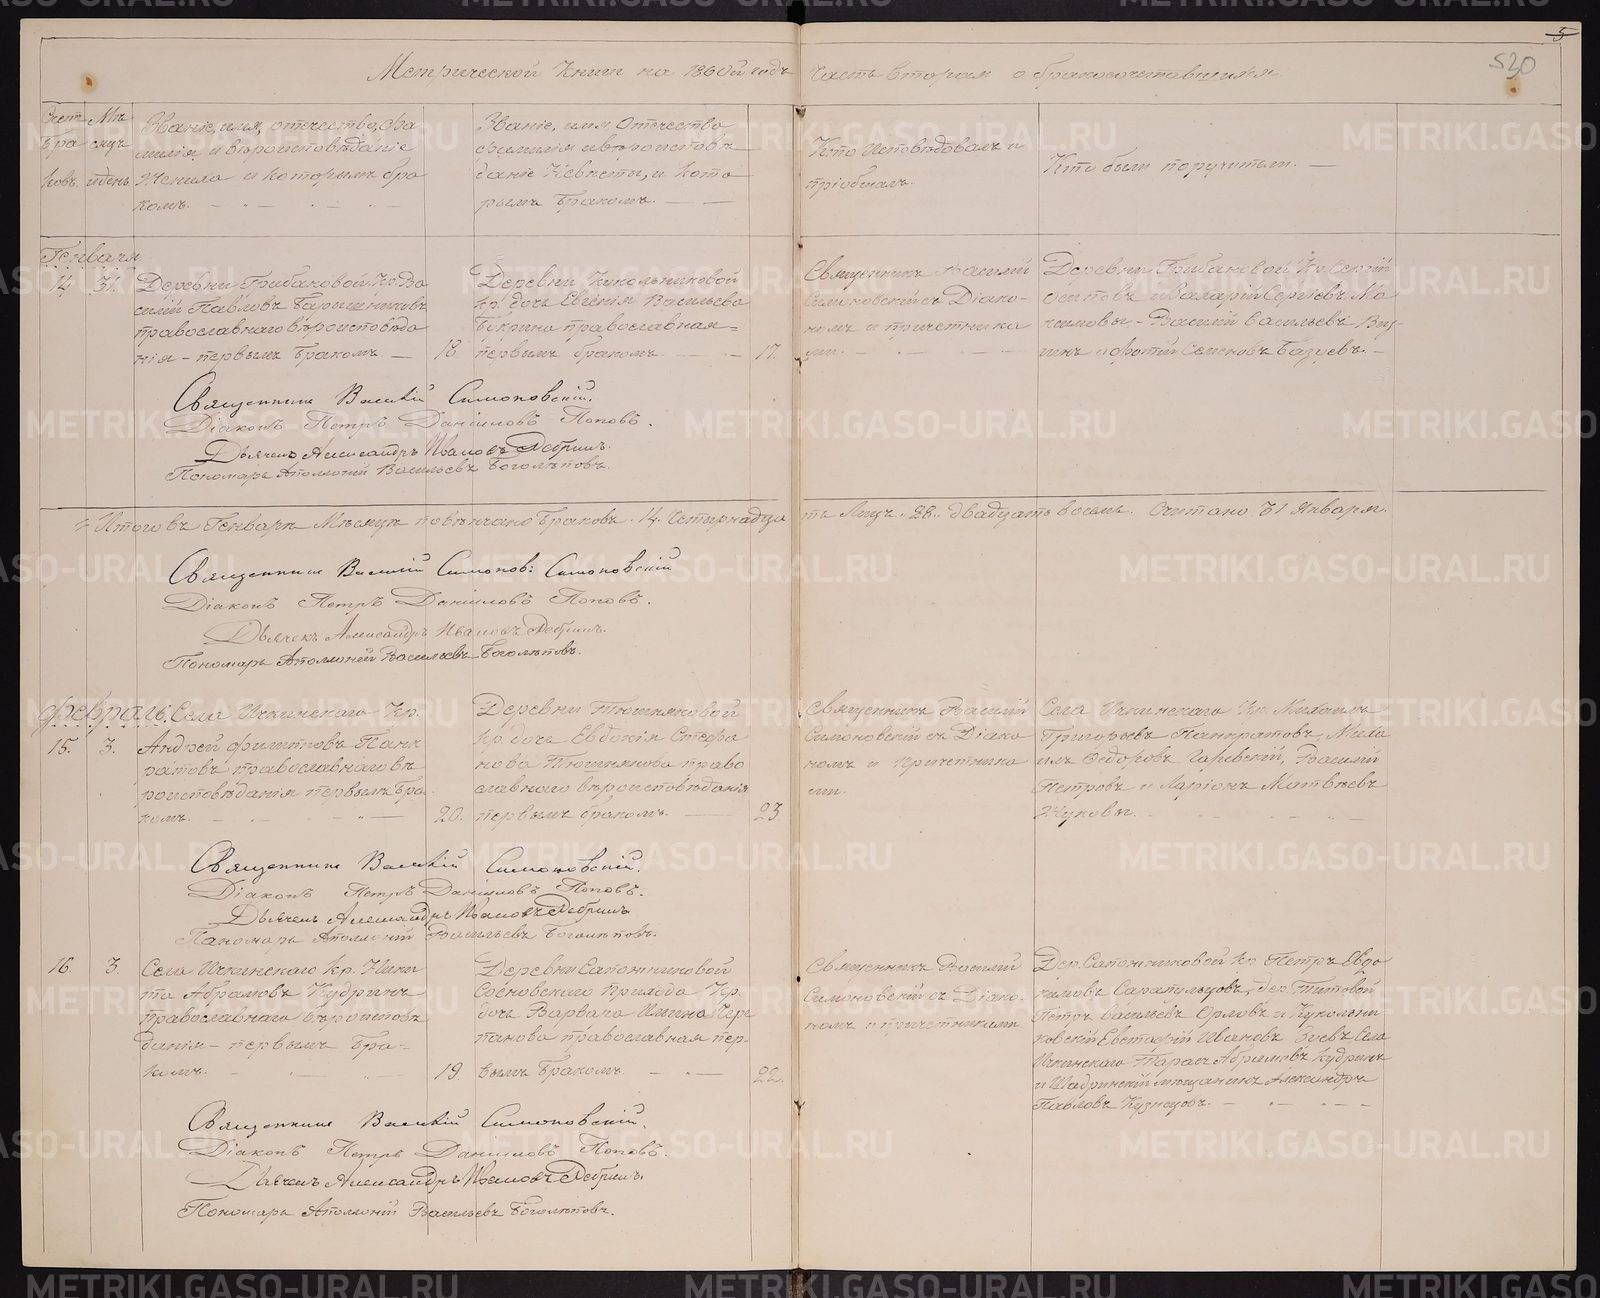 5
530
Метрической Книги на 1860й годъ часть вторая о бракосочетавшихся
Счетъ браковъ.
Мѣсяцъ и день
Званіе, имя, отечество, фа
милія и вѣроисповѣданіе
Жениха и которымъ бра
комъ.
Званіе, имя, Отечество
фамилія и вѣроисповѣ
даніе Невѣсты, и кото
рымъ бракомъ.
Кто исповѣдовалъ и
пріобщалъ.
Кто были поручители.
Генваря
14.
31.
Деревни Грибановой Кр. Ва
силій Павловъ Барышниковъ
православнаго вѣроисповѣда
нія – первымъ бракомъ
18
Деревни Кикольниковой
кр. дочь Евгенія Васильева
православная =
первымъ бракомъ.
17.
Священникъ Василій
Симоновскій съ Діако-
номъ и причетника
ми.
Деревни Грибановой Кр. Сергій
Осиповъ и Валарій Сергіевъ Ма
кимовы – Василій Васильевъ
и Фотій Семеновъ
Священникъ Василій Симоновскій.
Діаконъ Петръ Даниловъ Поповъ.
Дьячекъ Александръ Ивановъ Дебринъ.
Пономарь Аполлоній Васильевъ Боголѣповъ.
Итого въ Генварѣ Мѣсяцѣ повѣнчано браковъ 14. Четырнадца
ть Лицъ 28. двадцать восемь. Считано 31 Января.
Священникъ Василій Симонов: Симоновскій
Діаконъ Петръ Даниловъ Поповъ.
Дьячекъ Александръ Ивановъ Дебринъ.
Пономарь Аполлоній Васильевъ Боголѣповъ.
Февраль.
15.
3.
Села Ичкинскаго Кр.
Андрей Филиповъ Панк
ратовъ, православнаго вѣ
роисповѣданія первымъ бра
комъ.
20.
Деревни Тюшняковой
Кр. дочь Евдокія Стефа
нова Тюшнякова право
славнаго вѣроисповѣданія
первымъ бракомъ.
23
Священникъ Василій
Симоновскій съ Діако
номъ и причетника
ми.
Села Ичкинскаго Кр. Михаилъ
Григорьевъ Панкратовъ, Миха
илъ Федоровъ Василій
Петровъ и Ларіонъ Матвѣевъ
Жуковы.
Священникъ Василій Симоновскій.
Діаконъ Петръ Даниловъ Поповъ.
Дьячекъ Александръ Ивановъ Дебринъ
Паномарь Аполлоній Васильевъ Боголѣповъ.
16.
3.
Села Ичкинскаго Кр. Ники
та Абрамовъ Кудринъ
православнаго вѣроисповѣ
данія – первымъ бра-
комъ.
19.
Деревни Сапожниковой
Сосновскаго прихода Кр.
дочь Варвара Ильина Чере
панова православная пер-
вымъ бракомъ.
22.
Священникъ Василій
Симоновскій съ Діако-
номъ и причетниками
Дер. Сапожниковой Кр. Петръ Евдо
кимовъ Сарапульцовъ, Дер. Титовой
Петръ Васильевъ Орловъ и Кукольни
ковскій Евстафій Ивановъ Зуевъ Села
Ичкинскаго Тарасъ Абрамовъ Кудринъ
и Шадринскій мѣщанинъ Александръ
Павловъ Кузнецовъ.
Священникъ Василій Симоновскій.
Діаконъ Петръ Даниловъ Поповъ.
Дьячекъ Александръ Ивановъ Дебринъ.
Пономарь Аполлоній Васильевъ Боголѣповъ.
METRIKI.GASO-URAL.RU